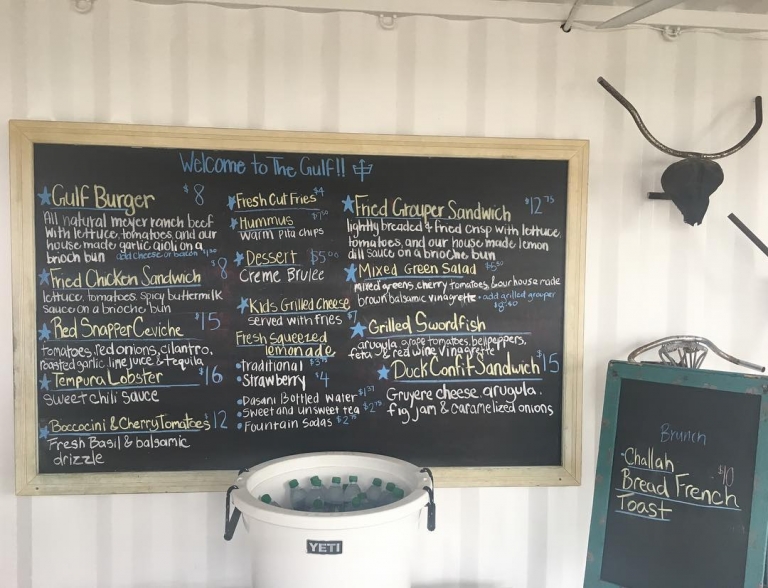 Welcome to The Gulf!!
Gulf Burger $8
All natural meyer ranch beef
with lettuce, tomatoes and our
house made garlic aioli on a
brioch bun add cheese or bacon
Fried Chicken Sandwich $8
lettuce, tomatoes, spicy buttermilk
sauce on a brioche bun
Red Snapper Ceviche $15
tomatoes, red onions, cilantro,
roasted garlic, lime juice & tequila
Tempura Lobster $16
sweet chili sauce
Boccocini & Cherry Tomatoes $12
Fresh Basil & balsamic
drizzle
Fresh Cut Fries $4
Hummus
warm pita chips
Dessert $5.00
Creme Brulee
Kids Grilled Cheese
served with fries $7
Fresh Squeezed
lemonade
Traditional
Strawberry $4
Dasani Bottled Water
Sweet and unsweet tea
Fountain Sodas
Fried Grouper Sandwich $12.75
lightly breaded & fried crisp with lettuce,
tomatoes, and our house made lemon
dill sauce on a brioche bun
Mixed Green Salad
mixed greens, cherry tomatoes, & our house made
brown balsamic vinagrette • add grilled grouper
Grilled Swordfish
arugula, grape tomatoes, bellpeppers,
feta & red wine vinagrette
Duck Confit Sandwich $15
Gruyere cheese, arugula,
fig jam & caramelized onions
YETI
Brunch
Challah $10
Bread French
Toast